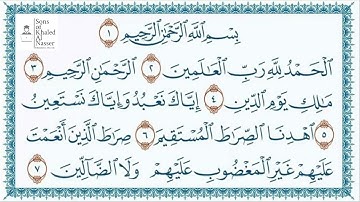 Sons
of
Khaled
Al
Nasser
بِسْمِ ٱللَّهِ ٱلرَّحْمَٰنِ ٱلرَّحِيمِ ١
ٱلْحَمْدُ لِلَّهِ رَبِّ ٱلْعَٰلَمِينَ ٢ ٱلرَّحْمَٰنِ ٱلرَّحِيمِ ٣
مَٰلِكِ يَوْمِ ٱلدِّينِ ٤ إِيَّاكَ نَعْبُدُ وَإِيَّاكَ نَسْتَعِينُ
٥ ٱهْدِنَا ٱلصِّرَٰطَ ٱلْمُسْتَقِيمَ ٦ صِرَٰطَ ٱلَّذِينَ أَنْعَمْتَ
عَلَيْهِمْ غَيْرِ ٱلْمَغْضُوبِ عَلَيْهِمْ وَلَا ٱلضَّآلِّينَ ٧